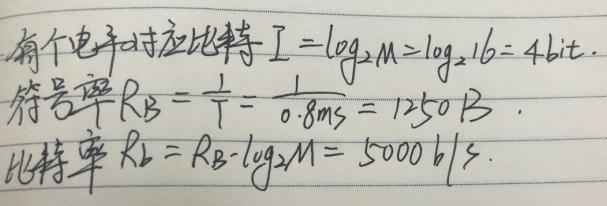 有个电平对应比特 I = log₂M = log₂16 = 4bit.
符号率 R_B = 1/T = 1/0.8ms = 1250 B.
比特率 R_b = R_B·log₂M = 5000 b/s.